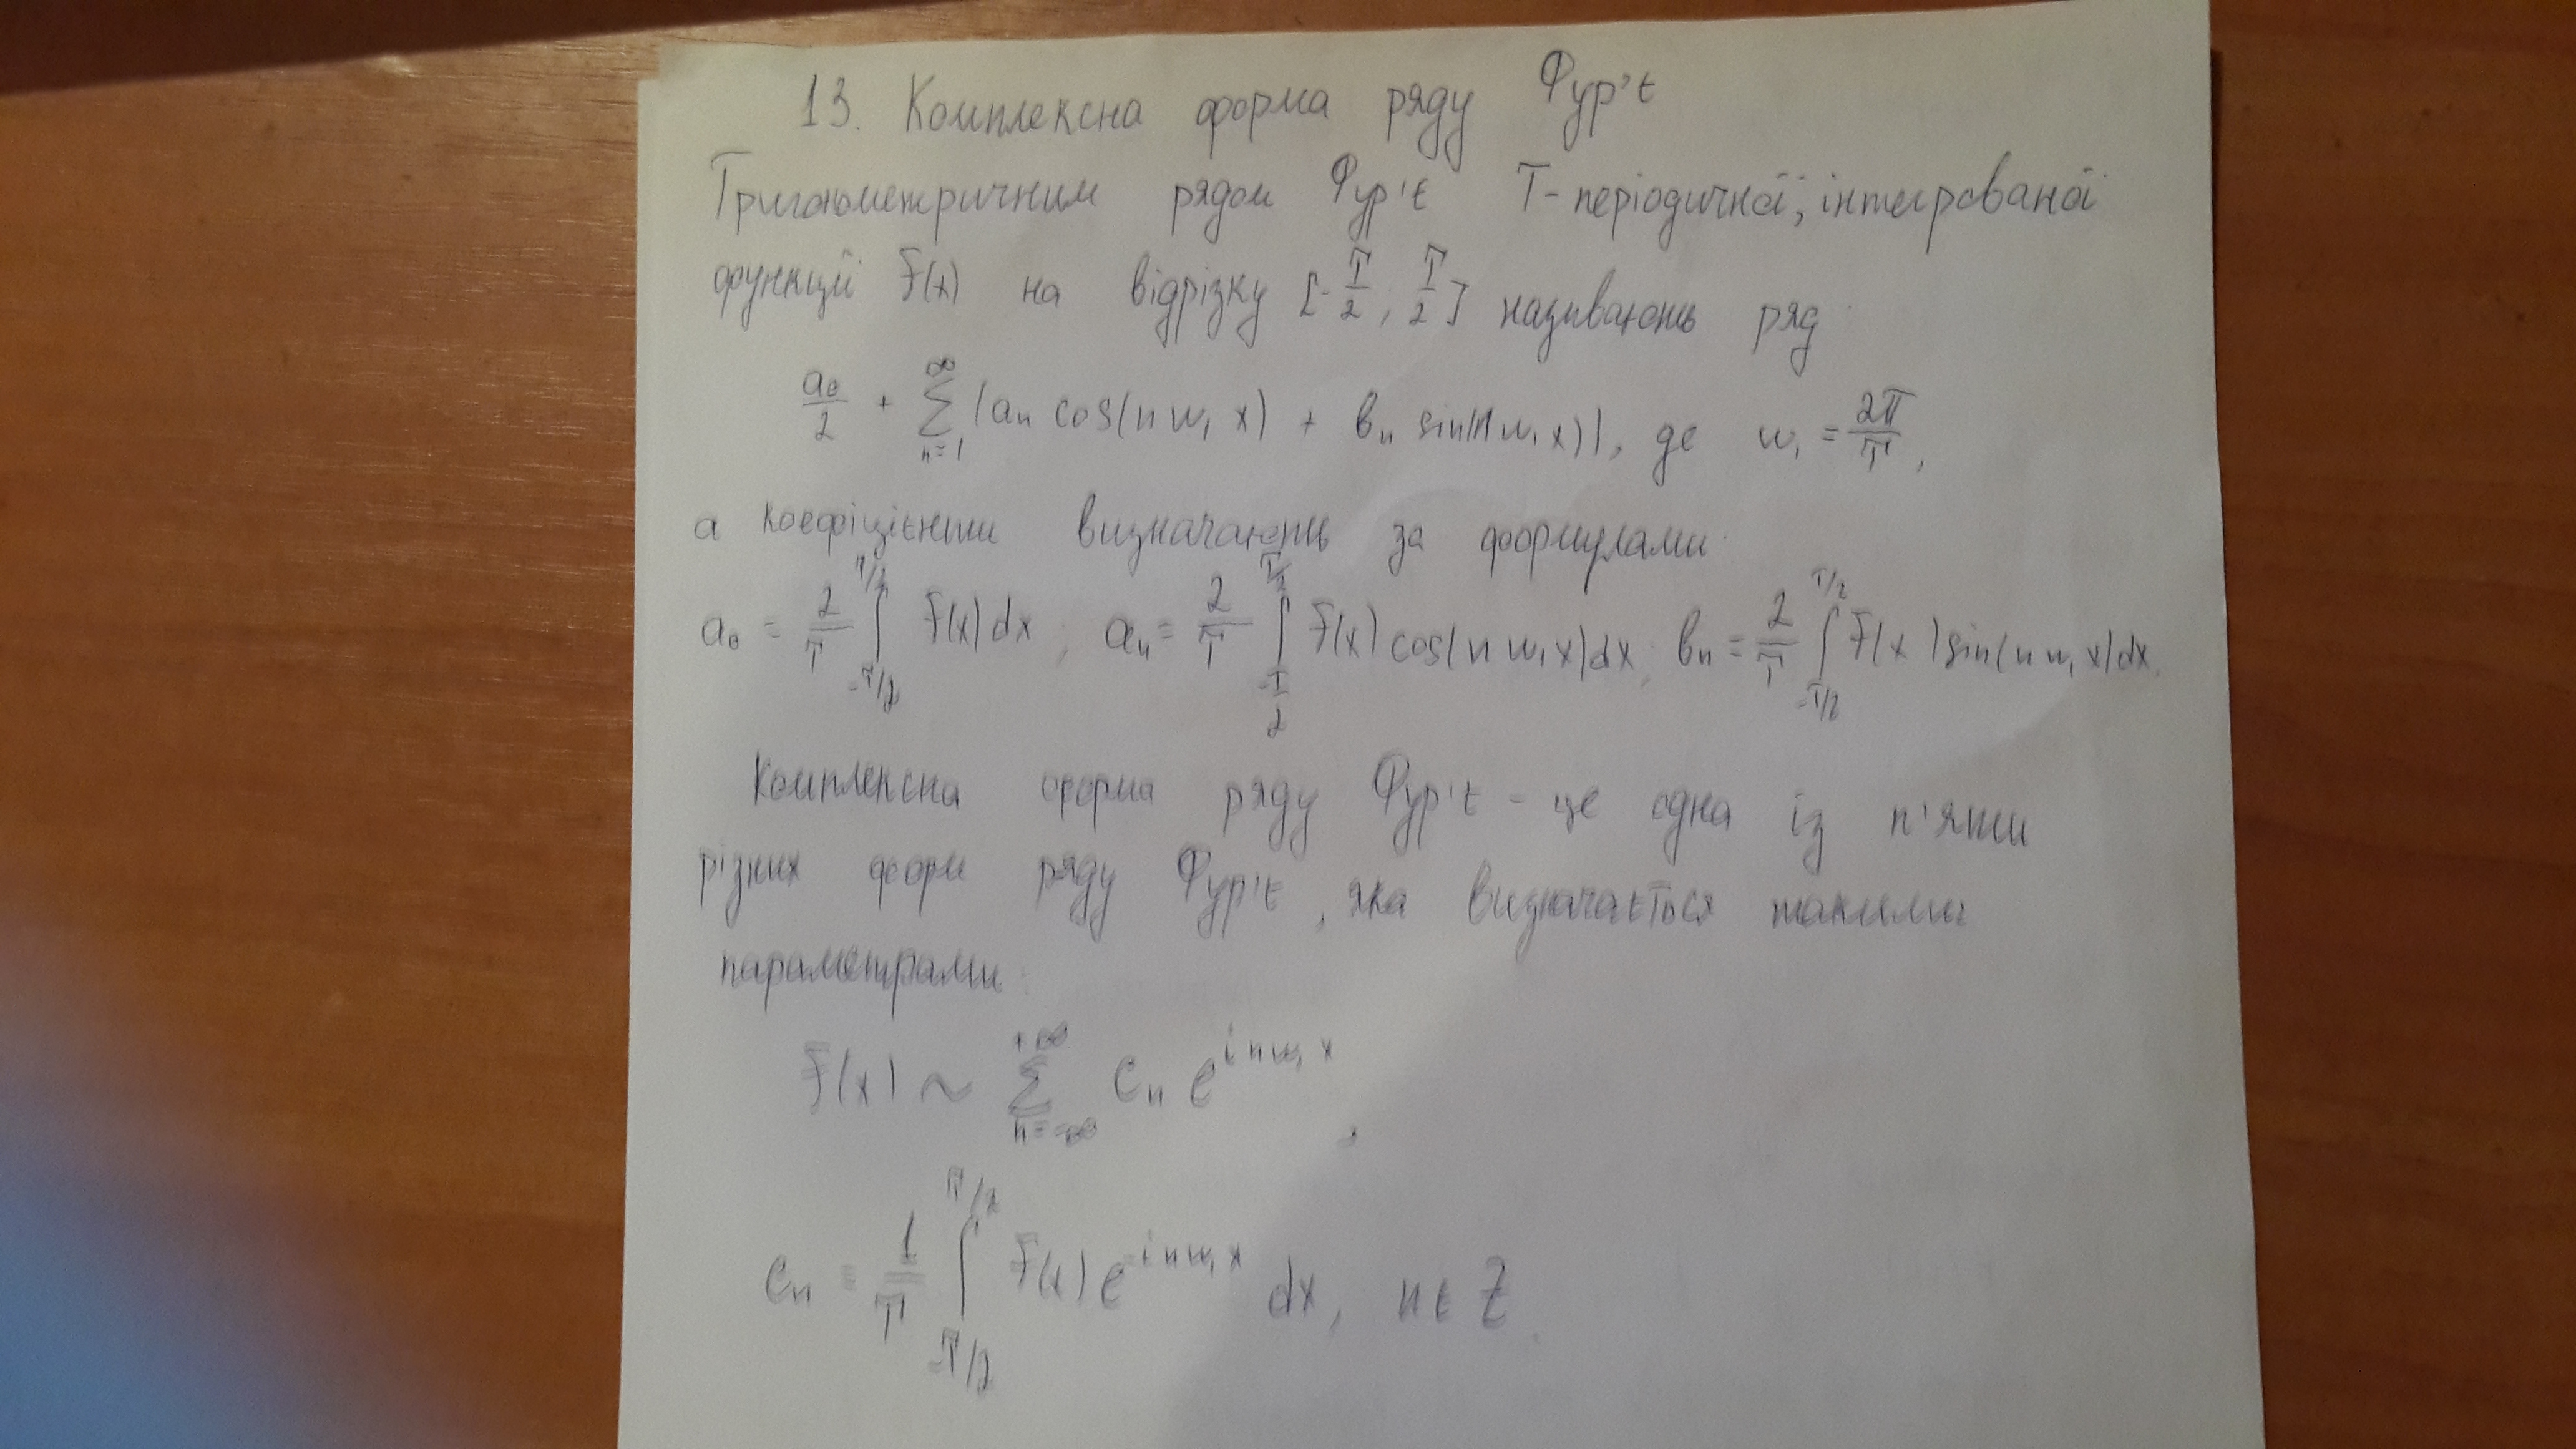 13. Комплексна форма ряду Фур'є
Тригонометричним рядом Фур'є T-періодичної, інтегрованої
функції f(x) на відрізку [-T/2; T/2] називають ряд
a₀/2 + ∑_{n=1}^{∞} (aₙ cos(n w₁ x) + bₙ sin(n w₁ x)), де w₁ = 2π/T,
а коефіцієнти визначають за формулами
a₀ = 2/T ∫_{-T/2}^{T/2} f(x) dx; aₙ = 2/T ∫_{-T/2}^{T/2} f(x) cos(n w₁ x) dx; bₙ = 2/T ∫_{-T/2}^{T/2} f(x) sin(n w₁ x) dx.
Комплексна форма ряду Фур'є - це одна із п'яти
різних форм ряду Фур'є, яка визначається такими
параметрами:
f(x) ~ ∑_{n=-∞}^{+∞} cₙ e^{i n w₁ x},
cₙ = 1/T ∫_{-T/2}^{T/2} f(x) e^{-i n w₁ x} dx, n ∈ Z.